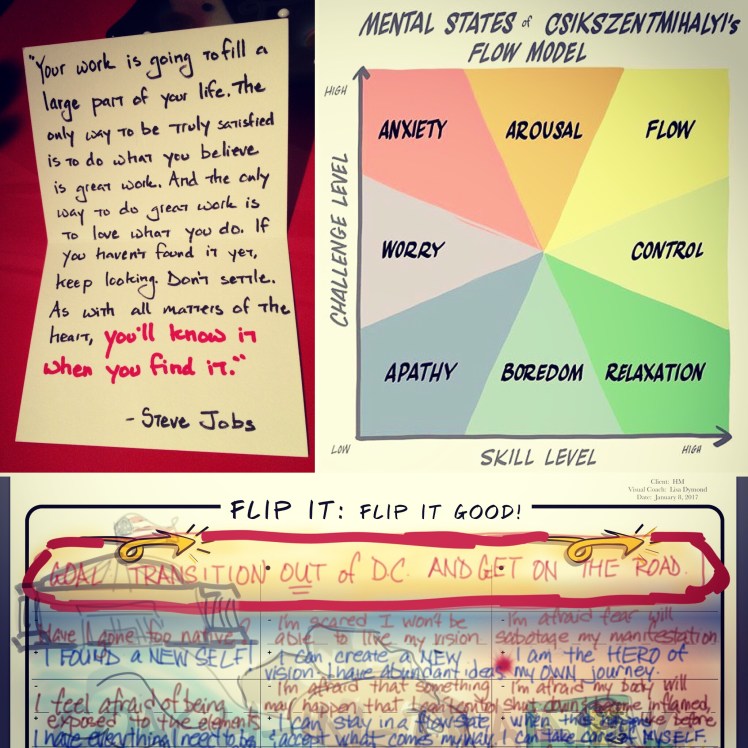 "Your work is going to fill a
large part of your life. The
only way to be truly satisfied
is to do what you believe
is great work. And the only
way to do great work is
to love what you do. If
you haven't found it yet,
keep looking. Don't settle.
As with all matters of the
heart, you'll know it
when you find it."
- Steve Jobs
MENTAL STATES of CSIKSZENTMIHALYI's
FLOW MODEL
HIGH
ANXIETY
AROUSAL
FLOW
CHALLENGE LEVEL
WORRY
CONTROL
APATHY
BOREDOM
RELAXATION
LOW
SKILL LEVEL
HIGH
Client: HM
Visual Coach: Lisa Dymond
Date: January 8, 2017
FLIP IT: FLIP IT GOOD!
GOAL TRANSITION OUT of D.C. AND GET ON THE ROAD.
Have I gone too native?
I FOUND A NEW SELF!
I'm scared I won't be
able to live my vision
I can create a NEW
vision. I have abundant ideas
I'm afraid fear will
sabotage my manifestation
I am the HERO of
my OWN journey.
I feel afraid of being
exposed to the elements
I have everything I need to be
I'm afraid that something
may happen that I can't control
I can stay in a flow state
& accept what comes my way.
I'm afraid my body will
shut down, become inflamed,
when this before
I can take care of MYSELF.